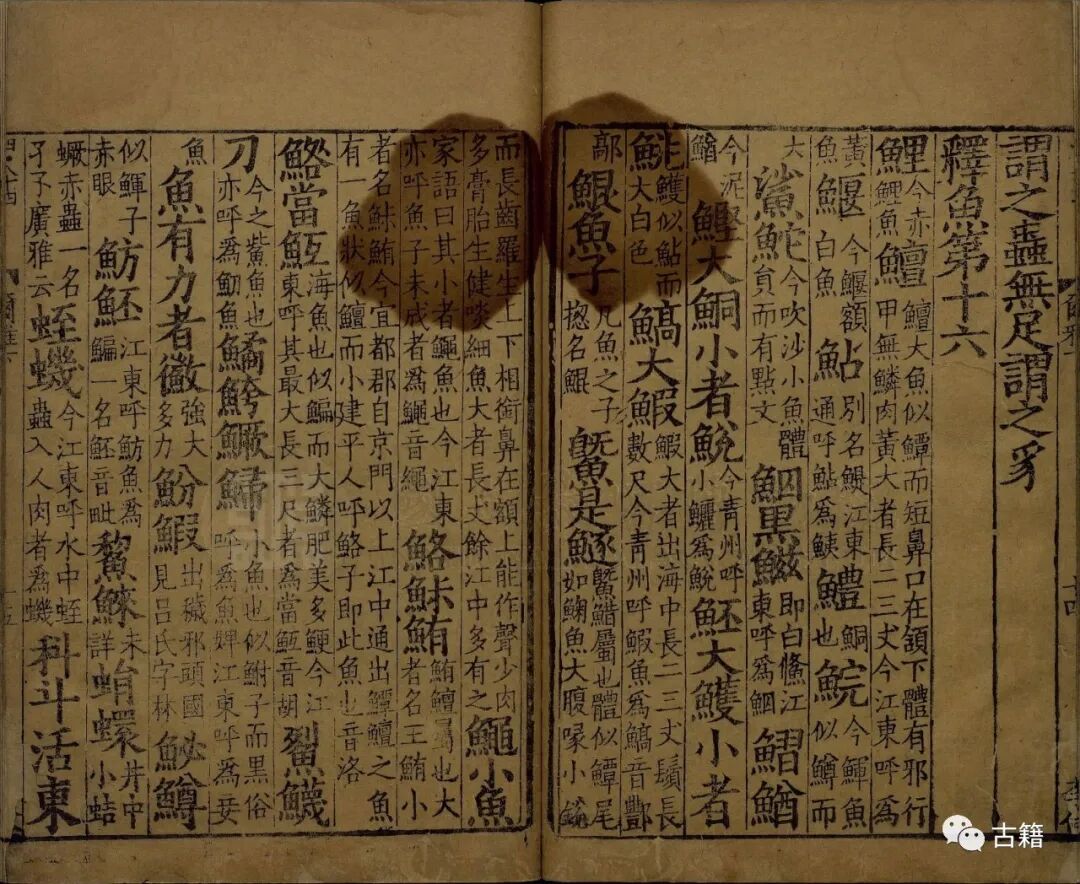 謂之蟲無足謂之豸
釋魚第十六
鯉今赤鯉魚鱣鱣大魚似鱏而短鼻口在頷下體有邪行甲無鱗肉黃大者長二三丈今江東呼爲
黃魚鰋今鰋額白魚鮎別名鯷江東通呼鮎爲鮧鱧鮦也鯇今鯶魚似鱒而
大鯊鮀今吹沙小魚體員而有點文鮂黑鰦即白鯈江東呼爲鮂鰼鰌
今泥鰌鰹大鮦小者鮵今青州呼小鱺爲鮵魾大鱯小者
鮡鱯似鮎而大白色鰝大鰕鰕大者出海中長二三丈鬚長數尺今青州呼鰕魚爲鰝音酆
鄗鯤魚子凡魚之子揔名鯤鱀是鱁鱀䱜屬也體似鱏尾如䱡魚大腹喙小銳
而長齒羅生上下相銜鼻在額上能作聲少肉多膏胎生健啖細魚大者長丈餘江中多有之鱦小魚
家語曰其小者鱦魚也今江東亦呼魚子未成者爲鱦音繩鮥鮛鮪鮪鱣屬也大者名王鮪小
者名鮛鮪今宜都郡自京門以上江中通出鱏鱣之魚有一魚狀似鱣而小建平人呼鮥子即此魚也音洛
鯦當魱海魚也似鯿而大鱗肥美多鯁今江東呼其最大長三尺者爲當魱音胡鮤鱴
刀今之鮆魚也亦呼爲魛魚鱊鮬鱖鯞小魚也似鮒子而黑俗呼爲魚婢江東呼爲妾
魚魚有力者黴強大多力魵鰕出穢邪頭國見呂氏字林鮅鱒
似鯶子赤眼魴魾江東呼魴魚爲鯿一名魾音毗鯬鯠未詳蜎蠉井中小蛣
蟩赤蟲一名孑孓廣雅云蛭蟣今江東呼水中蛭蟲入人肉者爲蟣科斗活東
古籍